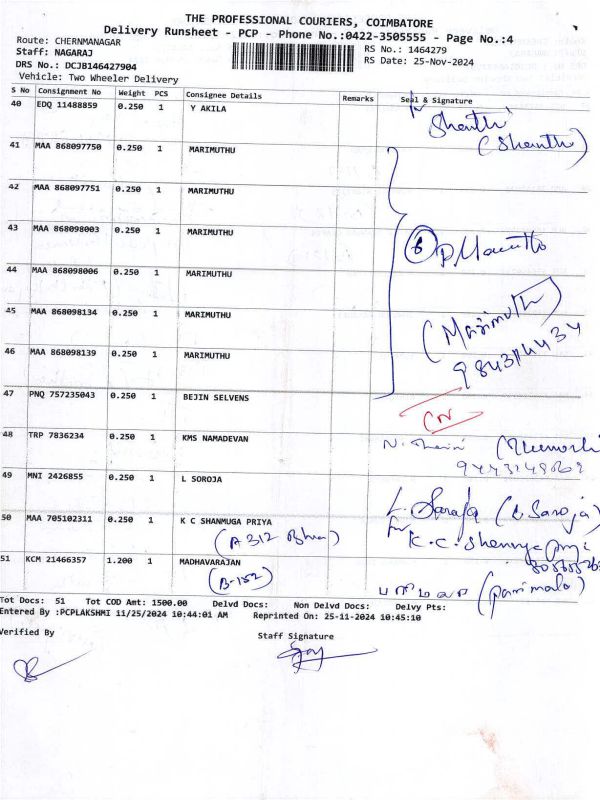 THE PROFESSIONAL COURIERS, COIMBATORE
Delivery Runsheet - PCP - Phone No.:0422-3505555 - Page No.:4
Route: CHERNMANAGAR RS No.: 1464279
Staff: NAGARAJ RS Date: 25-Nov-2024
DRS No.: DCJB146427904
Vehicle: Two Wheeler Delivery
S No Consignment No Weight PCS Consignee Details Remarks Seal & Signature
40 EDQ 11488859 0.250 1 Y AKILA
Shanthi
(Shanthi)
41 MAA 868097750 0.250 1 MARIMUTHU
42 MAA 868097751 0.250 1 MARIMUTHU
43 MAA 868098003 0.250 1 MARIMUTHU
6
44 MAA 868098006 0.250 1 MARIMUTHU
45 MAA 868098134 0.250 1 MARIMUTHU
(Marimuth)
46 MAA 868098139 0.250 1 MARIMUTHU
47 PNQ 757235043 0.250 1 BEJIN SELVENS
48 TRP 7836234 0.250 1 KMS NAMADEVAN
49 MNI 2426855 0.250 1 L SOROJA
L. Saroja (L Saroja)
50 MAA 705102311 0.250 1 K C SHANMUGA PRIYA
for K. C.
(A 312
51 KCM 21466357 1.200 1 MADHAVARAJAN
(B-152) (parimala)
Tot Docs: 51 Tot COD Amt: 1500.00 Delvd Docs: Non Delvd Docs: Delvy Pts:
Entered By :PCPLAKSHMI 11/25/2024 10:44:01 AM Reprinted On: 25-11-2024 10:45:10
Verified By Staff Signature